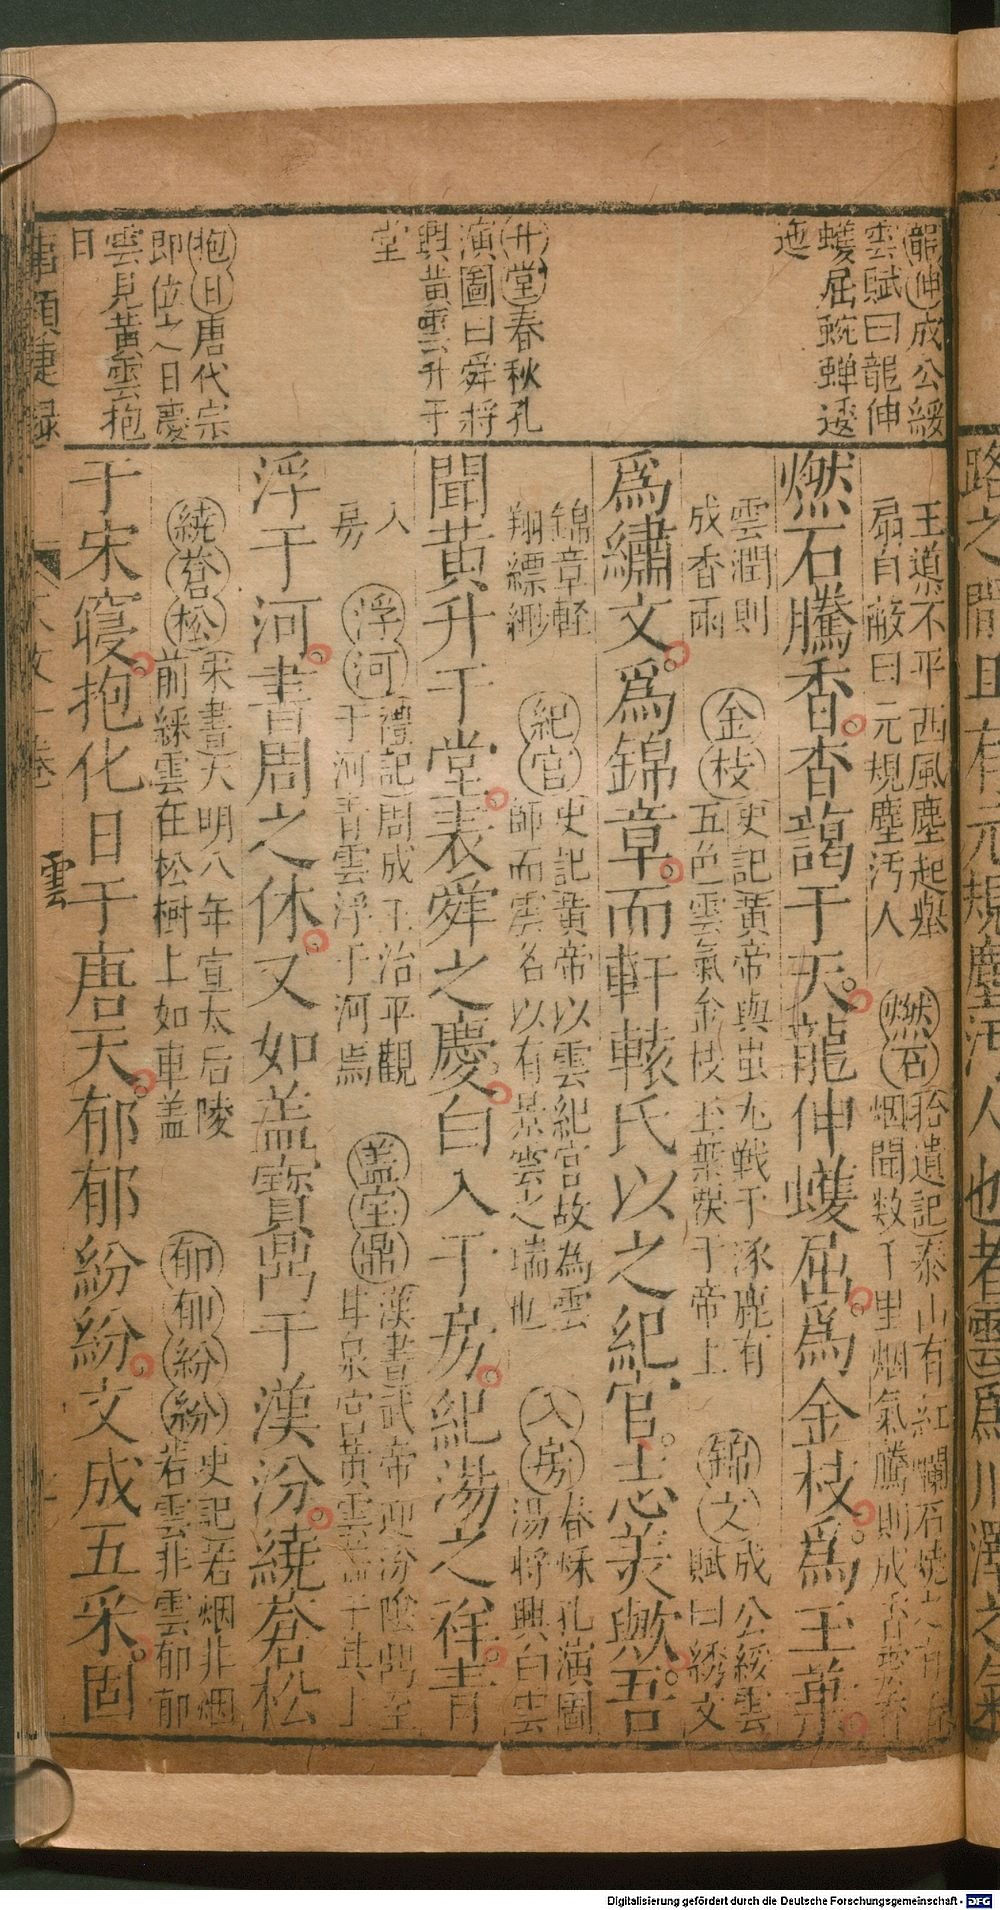 龍伸成公綏
雲賦曰龍伸
蠖屈蜿蟬逶
迤
升堂春秋孔
演圖曰舜將
興黃雲升于
堂
抱日唐代宗
即位之日慶
雲見黃雲抱
日
王道不平西風塵起舉
扇自蔽曰元規塵汚人
燃石拾遺記泰山有紅爛石燒之有
烟聞数千里烟氣騰則成香雲香
燃石騰香香藹于天龍伸蠖屈爲金枝爲玉葉
雲潤則
成香雨
金枝史記黃帝與蚩尤戦于涿鹿有
五色雲氣金枝玉葉於于帝上
錦文成公綏雲
賦曰綉文
爲繡文爲錦章而軒轅氏以之紀官志美歟吾
錦章軽
翔縹緲
紀官史記黃帝以雲紀官故為雲
師而雲名以有景雲之瑞也
入房春秋孔演圖
湯將興白雲
聞黃升于堂表舜之慶白入于房紀湯之祥青
入
房
浮河禮記周成王治平觀
于河青雲浮于河焉
盖宝鼎漢書武帝迎汾陰鼎至
甘泉宮黃雲盖于其上
浮于河書周之休又如盖寶鼎于漢汾繞蒼松
繞蒼松宋書大明八年宣太后陵
前綵雲在松樹上如車盖
郁郁紛紛史記若烟非烟
若雲非雲郁郁
于宋寢抱化日于唐天郁郁紛紛文成五采固
事類捷録
天文一卷
雲
路之間且有元規塵汚人也者雲爲川澤之氣
Digitalisierung gefördert durch die Deutsche Forschungsgemeinschaft - DFG